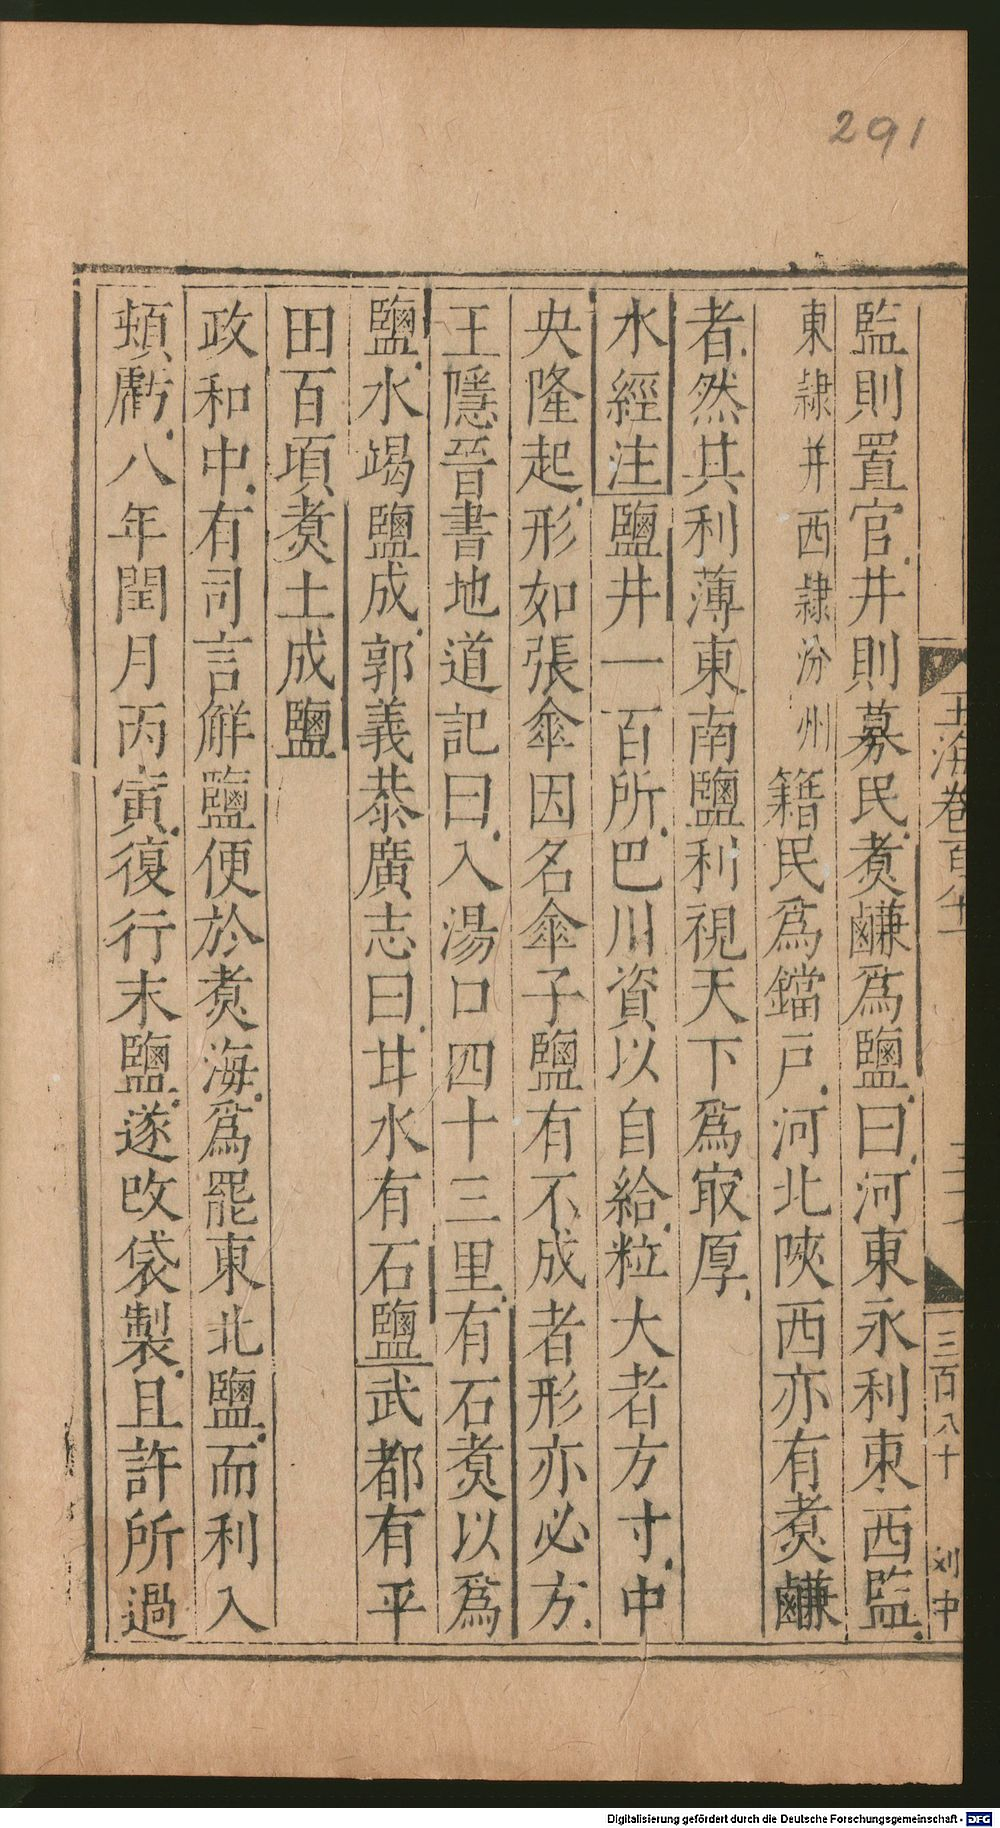 291
玉海卷百八十一
三百八十
刘中
監則置官井則募民煑鹻爲鹽曰河東永利東西監
東隷并西隷汾州 籍民爲鐺戸河北陜西亦有煑鹻
者然其利薄東南鹽利視天下爲㝡厚
水經注鹽井一百所巴川資以自給粒大者方寸中
央隆起形如張傘因名傘子鹽有不成者形亦必方
王隱晉書地道記曰入湯口四十三里有石煑以爲
鹽水竭鹽成郭義恭廣志曰甘水有石鹽武都有平
田百頃煑土成鹽
政和中有司言解鹽便於煑海爲罷東北鹽而利入
頰虧八年閏月丙寅復行末鹽遂改袋製且許所過
Digitalisierung gefördert durch die Deutsche Forschungsgemeinschaft - DFG